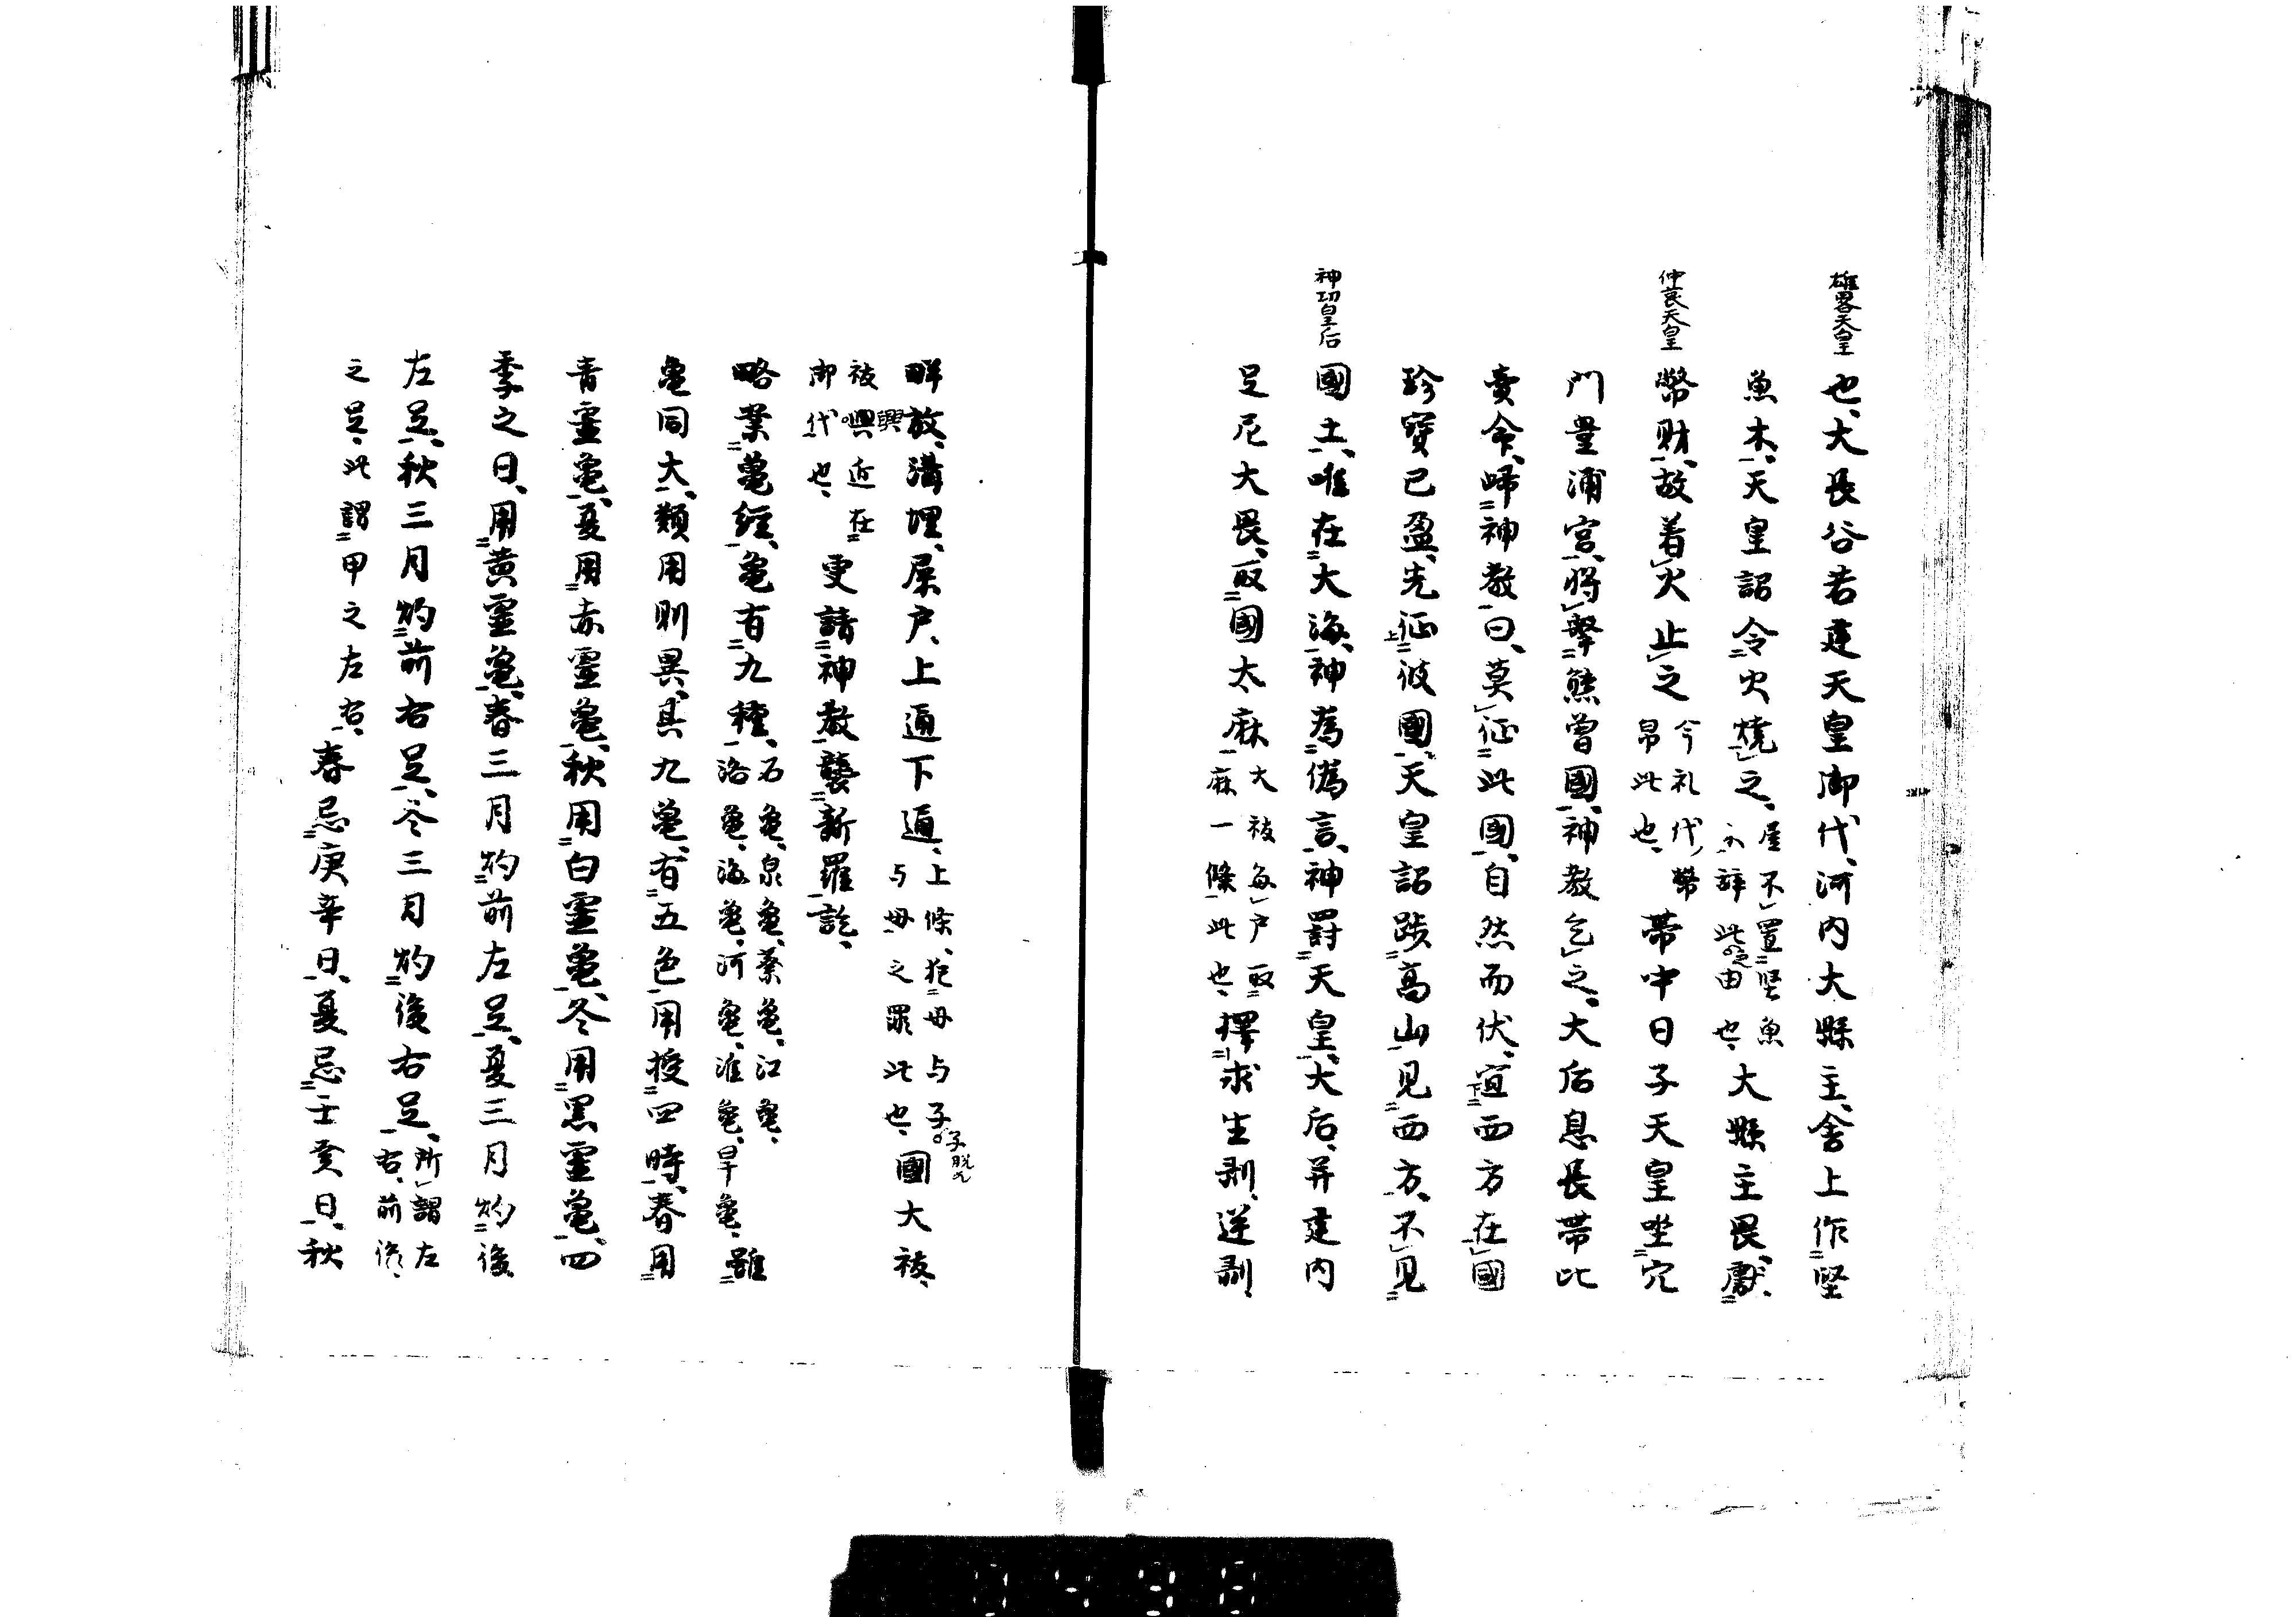 雄畧天皇
也、大長谷若建天皇御代、河内大縣主、舎上作堅
魚木、天皇詔令火燒之、屋不置堅魚
木辞此之由也、大縣主畏、獻
仲哀天皇
幣財、故着火止之今礼代幣
帛此也、帯中日子天皇坐穴
門豊浦宮、将撃熊曽國、神教乞之、大后息長帯比
賣命、帰神教曰、莫征此國、自然而伏、宜西方在國
珍寶已盈、先征彼國、天皇詔踄高山見西方、不見
神功皇后
國土、唯在大海、神為偽言、神罸天皇、大后、并建内
足尼大畏、取國大麻大祓毎戸取
麻一條此也、擇求生剥、逆剥、
畔放、溝埋、屎戸、上通下通、上條、犯母与子
与母之罪此也、國大祓、
子脱乀
祓興近在
御代也、更請神教襲新羅訖、
興
略業龜經、龜有九種、石龜、泉龜、蔡龜、江龜、
洛龜、海龜、河龜、淮龜、旱龜、雖
龜同大、類用則異、其九龜、有五色用授四時、春用
青霊龜、夏用赤霊龜、秋用白霊龜、冬用黒霊龜、四
季之日、用黄霊龜、春三月灼前左足、夏三月灼後
左足、秋三月灼前右足、冬三月灼後右足、所謂左
右、前後、
之足、此謂甲之左右、春忌庚辛日、夏忌壬癸日、秋